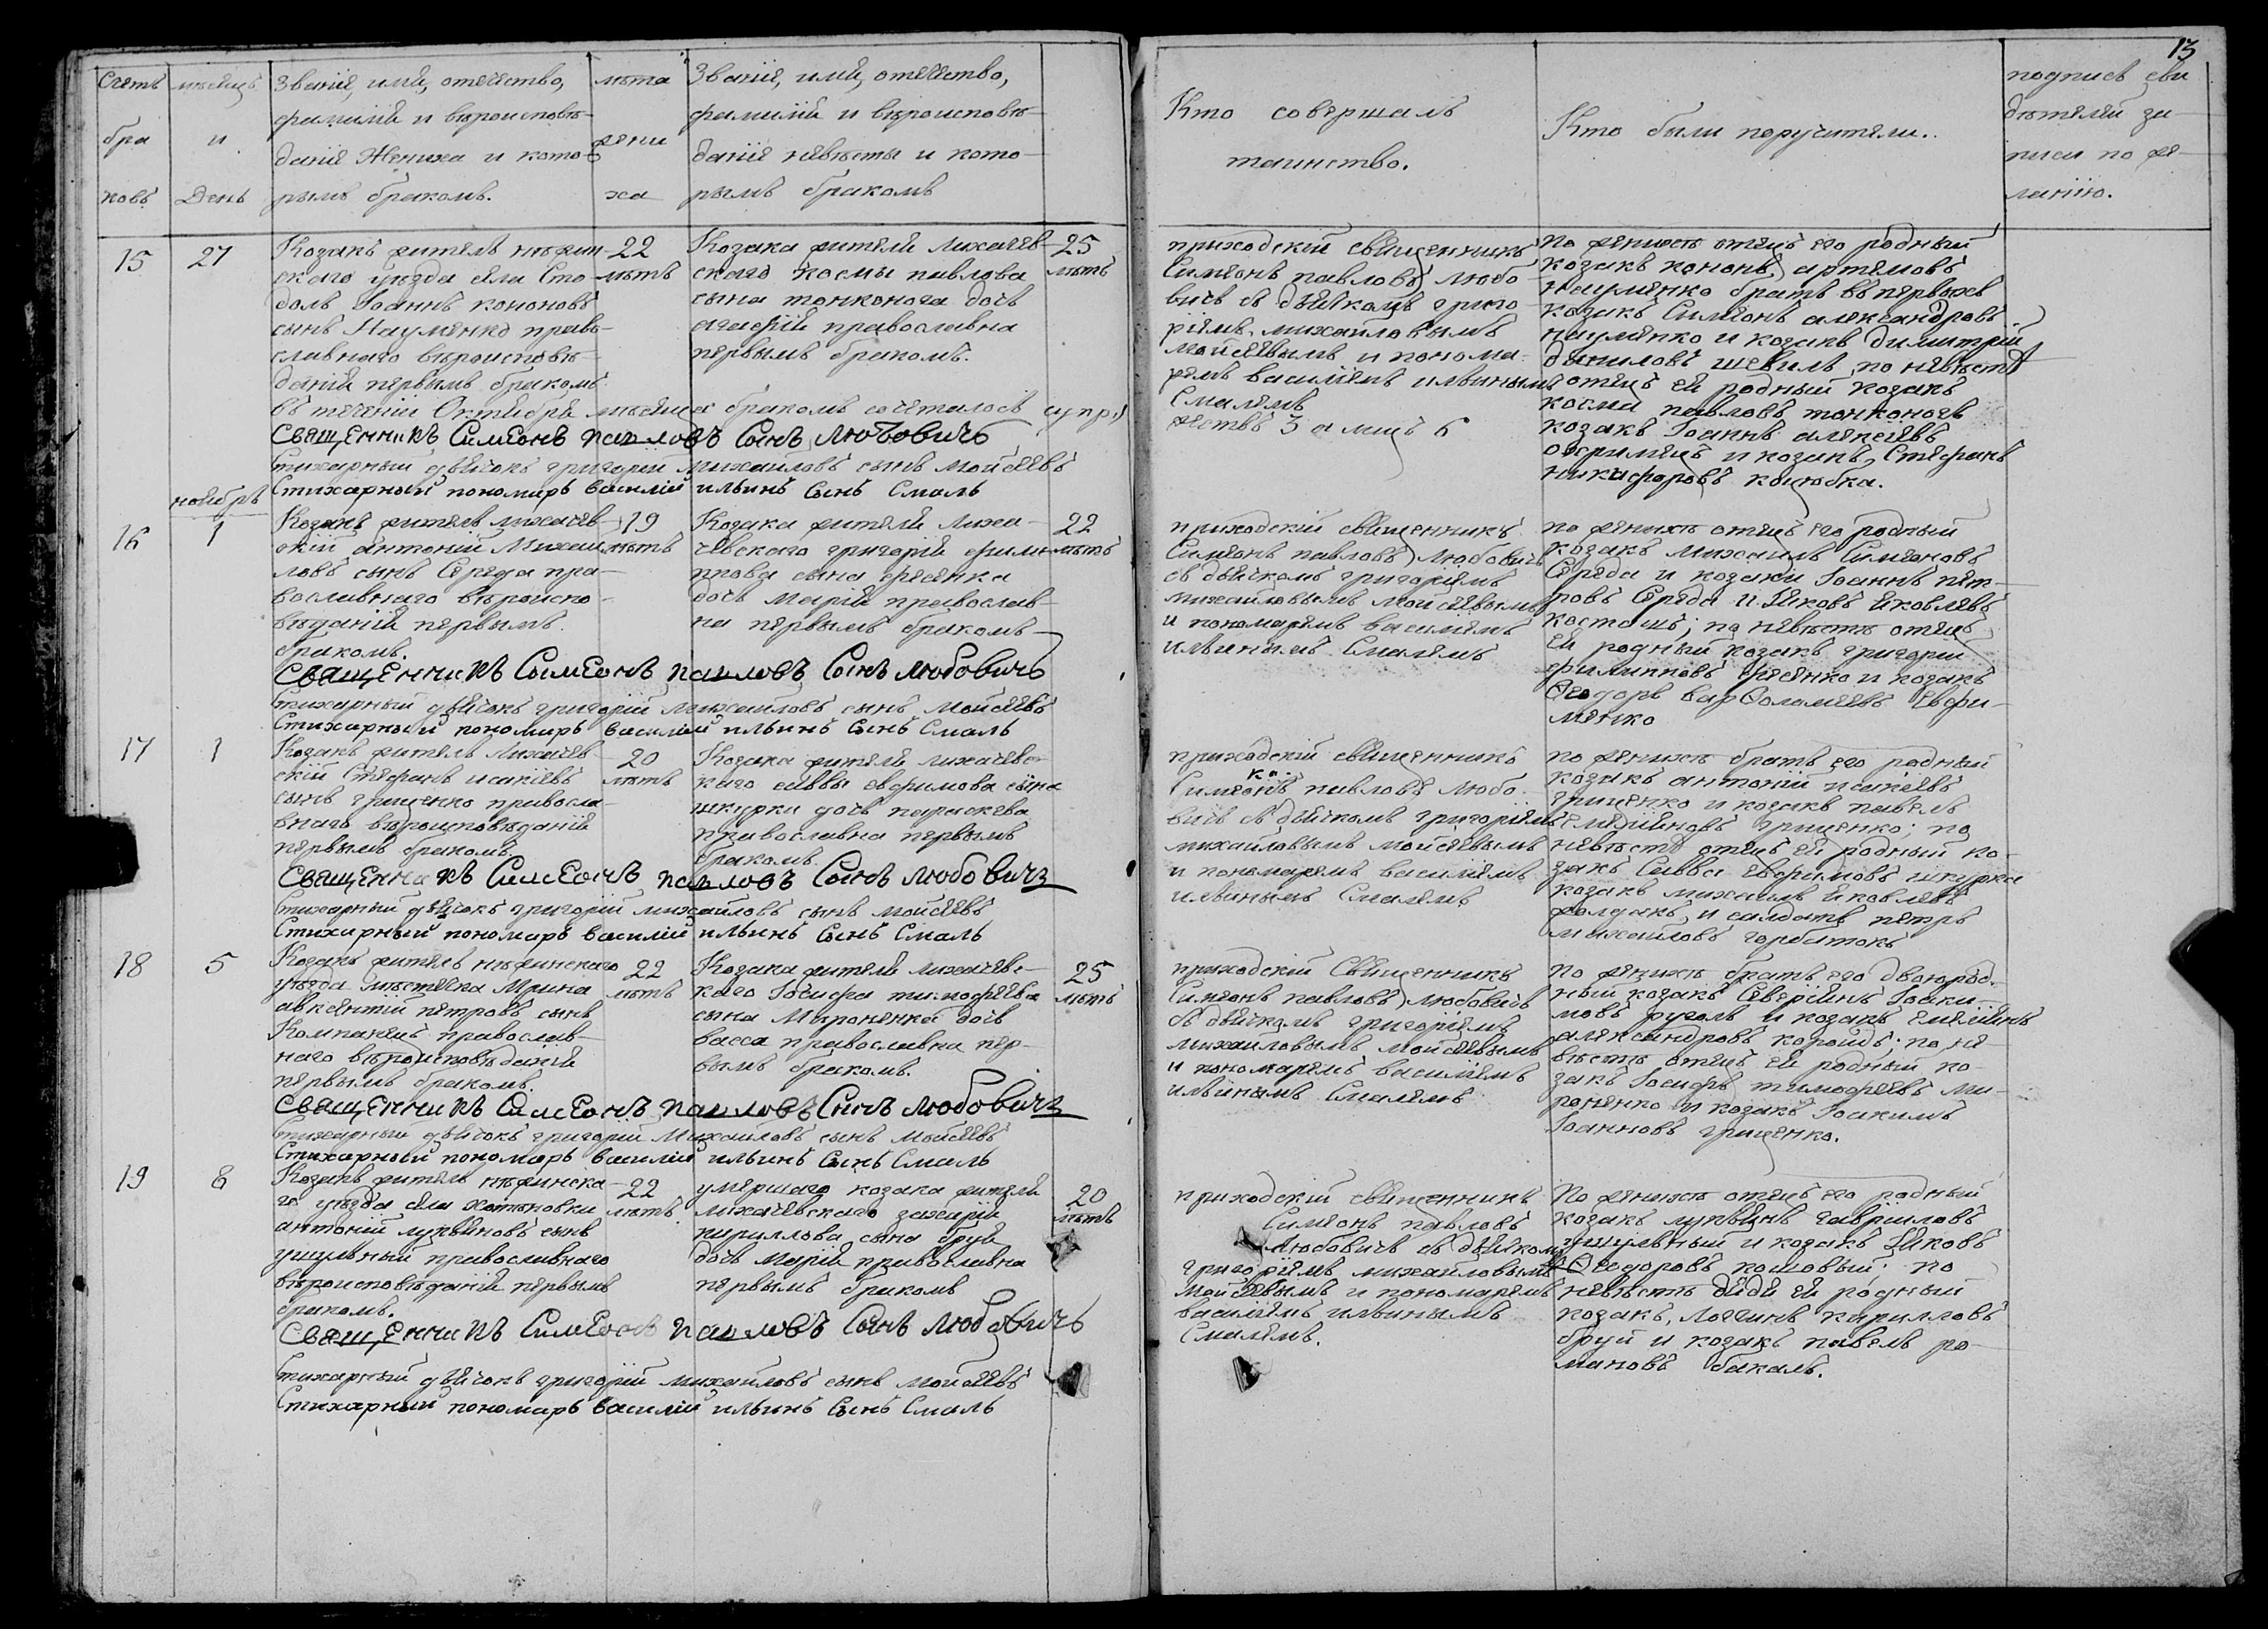 13
Счетъ бра ковъ
мѣсяцъ и День
Званіе, имя, отечество,
фамилія и вѣроисповѣ-
даніе Жениха и кото-
рымъ бракомъ.
лѣта жени ха
Званіе, имя, отечество,
фамилія и вѣроисповѣ-
даніе невѣсты и кото-
рымъ бракомъ
Кто совершалъ
таинство.
Кто были поручители.
подпись сви
дѣтелей за-
писи по же-
ланію.
15
27
Козакъ житель нѣжин-
скаго уѣзда села Сто-
долъ Іоаннъ кононовъ
сынъ Науменко право-
славнаго вѣроисповѣ-
данія первымъ бракомъ
22
лѣтъ
Козака жителя лихачев-
скаго космы павлова
сына тонконога дочь
агафія православна
первымъ бракомъ.
25
лѣтъ
приходскій священникъ
Симеонъ павловъ любо-
вичъ съ дьячкомъ григо-
ріемъ михайловымъ
мойсеевымъ и понома-
ремъ василіемъ ильинымъ
Смалемъ
по женихѣ отецъ его родный
козакъ кононъ артемовъ
науменко братъ въ первыхъ
козакъ Симеонъ александровъ
науменко и козакъ димитрій
даниловъ шевиль, по невѣстѣ
отецъ ея родный козакъ
косма павловъ тонконогъ
козакъ Іоаннъ алексеевъ
охримецъ и козакъ Стефанъ
никифоровъ коцюбка.
въ теченіи Октября мѣсяца бракомъ сочеталось супру
жетвъ 3 а лицъ 6
Священникъ Симеонъ павловъ Сынъ Любовичъ
Стихарный дьячокъ григорій михайловъ сынъ мойсеевъ
Стихарный пономаръ василій ильинъ Сынъ Смаль
ноября
16
1
Козакъ житель лихачев-
скій антоній Михаи
ловъ сынъ Середа пра-
вославнаго вѣроиспо-
вѣданія первымъ
бракомъ.
19
лѣтъ
Козака жителя лиха-
чевскаго григорія фили-
ппова сына фесенка
дочь марія православ-
на первымъ бракомъ
22
лѣтъ
приходскій священникъ
Симеонъ павловъ любовичъ
съ дьячкомъ григоріемъ
михайловымъ мойсеевымъ
и пономаремъ василіемъ
ильинымъ Смалемъ
по женихѣ отецъ его родный
козакъ михаилъ Симеоновъ
Середа и козаки Іоаннъ пет-
ровъ Середа и Яковъ яковлевъ
косташъ; по невѣстѣ отецъ
ея родный козакъ григорій
филипповъ фесенко и козакъ
Ѳеодоръ варѳоломеевъ Евфи-
менко
Священникъ Симеонъ павловъ Сынъ Любовичъ
Стихарный дьячокъ григорій михайловъ сынъ мойсеевъ
Стихарный пономаръ василій ильинъ Сынъ Смаль
17
1
Козакъ житель лихачев-
скій Стефанъ исакіевъ
сынъ гриценко правосла-
внаго вѣроисповѣданія
первымъ бракомъ.
20
лѣтъ
Козака жителя лихачевс-
каго саввы евфимова сына
шкурки дочь параскева
православна первымъ
бракомъ.
приходскій священникъ
Симеонъ павловъ любо-
вичъ съ дьячкомъ григоріемъ
михайловымъ мойсеевымъ
и пономаремъ василіемъ
ильинымъ Смалемъ
по женихѣ братъ его родный
козакъ антоній исакіевъ
гриценко и козакъ павелъ
емеліяновъ гриценко; по
невѣстѣ отецъ ея родный ко-
закъ Савва евфимовъ шкурка
козакъ михаилъ яковлевъ
и салдатъ петръ
михайловъ горбатокъ
Священникъ Симеонъ павловъ Сынъ Любовичъ
Стихарный дьячокъ григорій михайловъ сынъ мойсеевъ
Стихарный пономаръ василій ильинъ Сынъ Смаль
18
5
Козакъ житель нѣжинскаго
уѣзда мѣстечка Мрина
авксентій петровъ сынъ
Компанецъ православ-
наго вѣроисповѣданія
первымъ бракомъ.
22
лѣтъ
Козака жителя лихачевс-
каго Іосифа тимофеева
сына Мироненка дочь
васса православна пер-
вымъ бракомъ.
25
лѣтъ
приходскій Священникъ
Симеонъ павловъ любовичъ
съ дьячкомъ григоріемъ
михайловымъ мойсеевымъ
и пономаремъ василіемъ
ильинымъ Смалемъ
по женихѣ братъ его двоюрод-
ный козакъ Северіянъ Іоаки-
мовъ руголь и козакъ емеліянъ
александровъ ; по не-
вѣстѣ отецъ ея родный ко-
закъ Іосифъ тимофеевъ ми-
роненко и козакъ Іоакимъ
Іоанновъ гриценко.
Священникъ Симеонъ павловъ Сынъ Любовичъ
Стихарный дьячокъ григорій михайловъ сынъ мойсеевъ
Стихарный пономаръ василій ильинъ Сынъ Смаль
19
8
Козакъ житель нѣжинска-
го уѣзда села хотыновки
антоній лукьяновъ сынъ
ушульный православнаго
вѣроисповѣданія первымъ
бракомъ.
22
лѣтъ
умершаго козака жителя
лихачевскаго захарія
кириллова сына бруя
дочь марія православна
первымъ бракомъ
20
лѣтъ
приходскій священникъ
Симеонъ павловъ
любовичъ съ дьячкомъ
григоріемъ михайловымъ
мойсеевымъ и пономаремъ
василіемъ ильинымъ
Смалемъ.
по женихѣ отецъ его родный
козакъ лукьянъ гавриловъ
ушульный и козакъ Яковъ
Ѳеодоровъ кошовый; по
невѣстѣ дядя ея родный
козакъ логвинъ кирилловъ
бруй и козакъ павелъ ро-
мановъ бакалъ.
Священникъ Симеонъ павловъ Сынъ Любовичъ
Стихарный дьячокъ григорій михайловъ сынъ мойсеевъ
Стихарный пономаръ василій ильинъ Сынъ Смаль